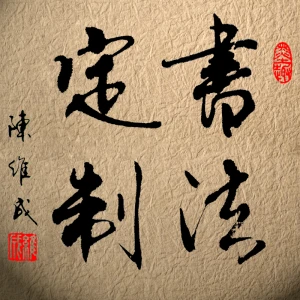 書法
定制
陳維成